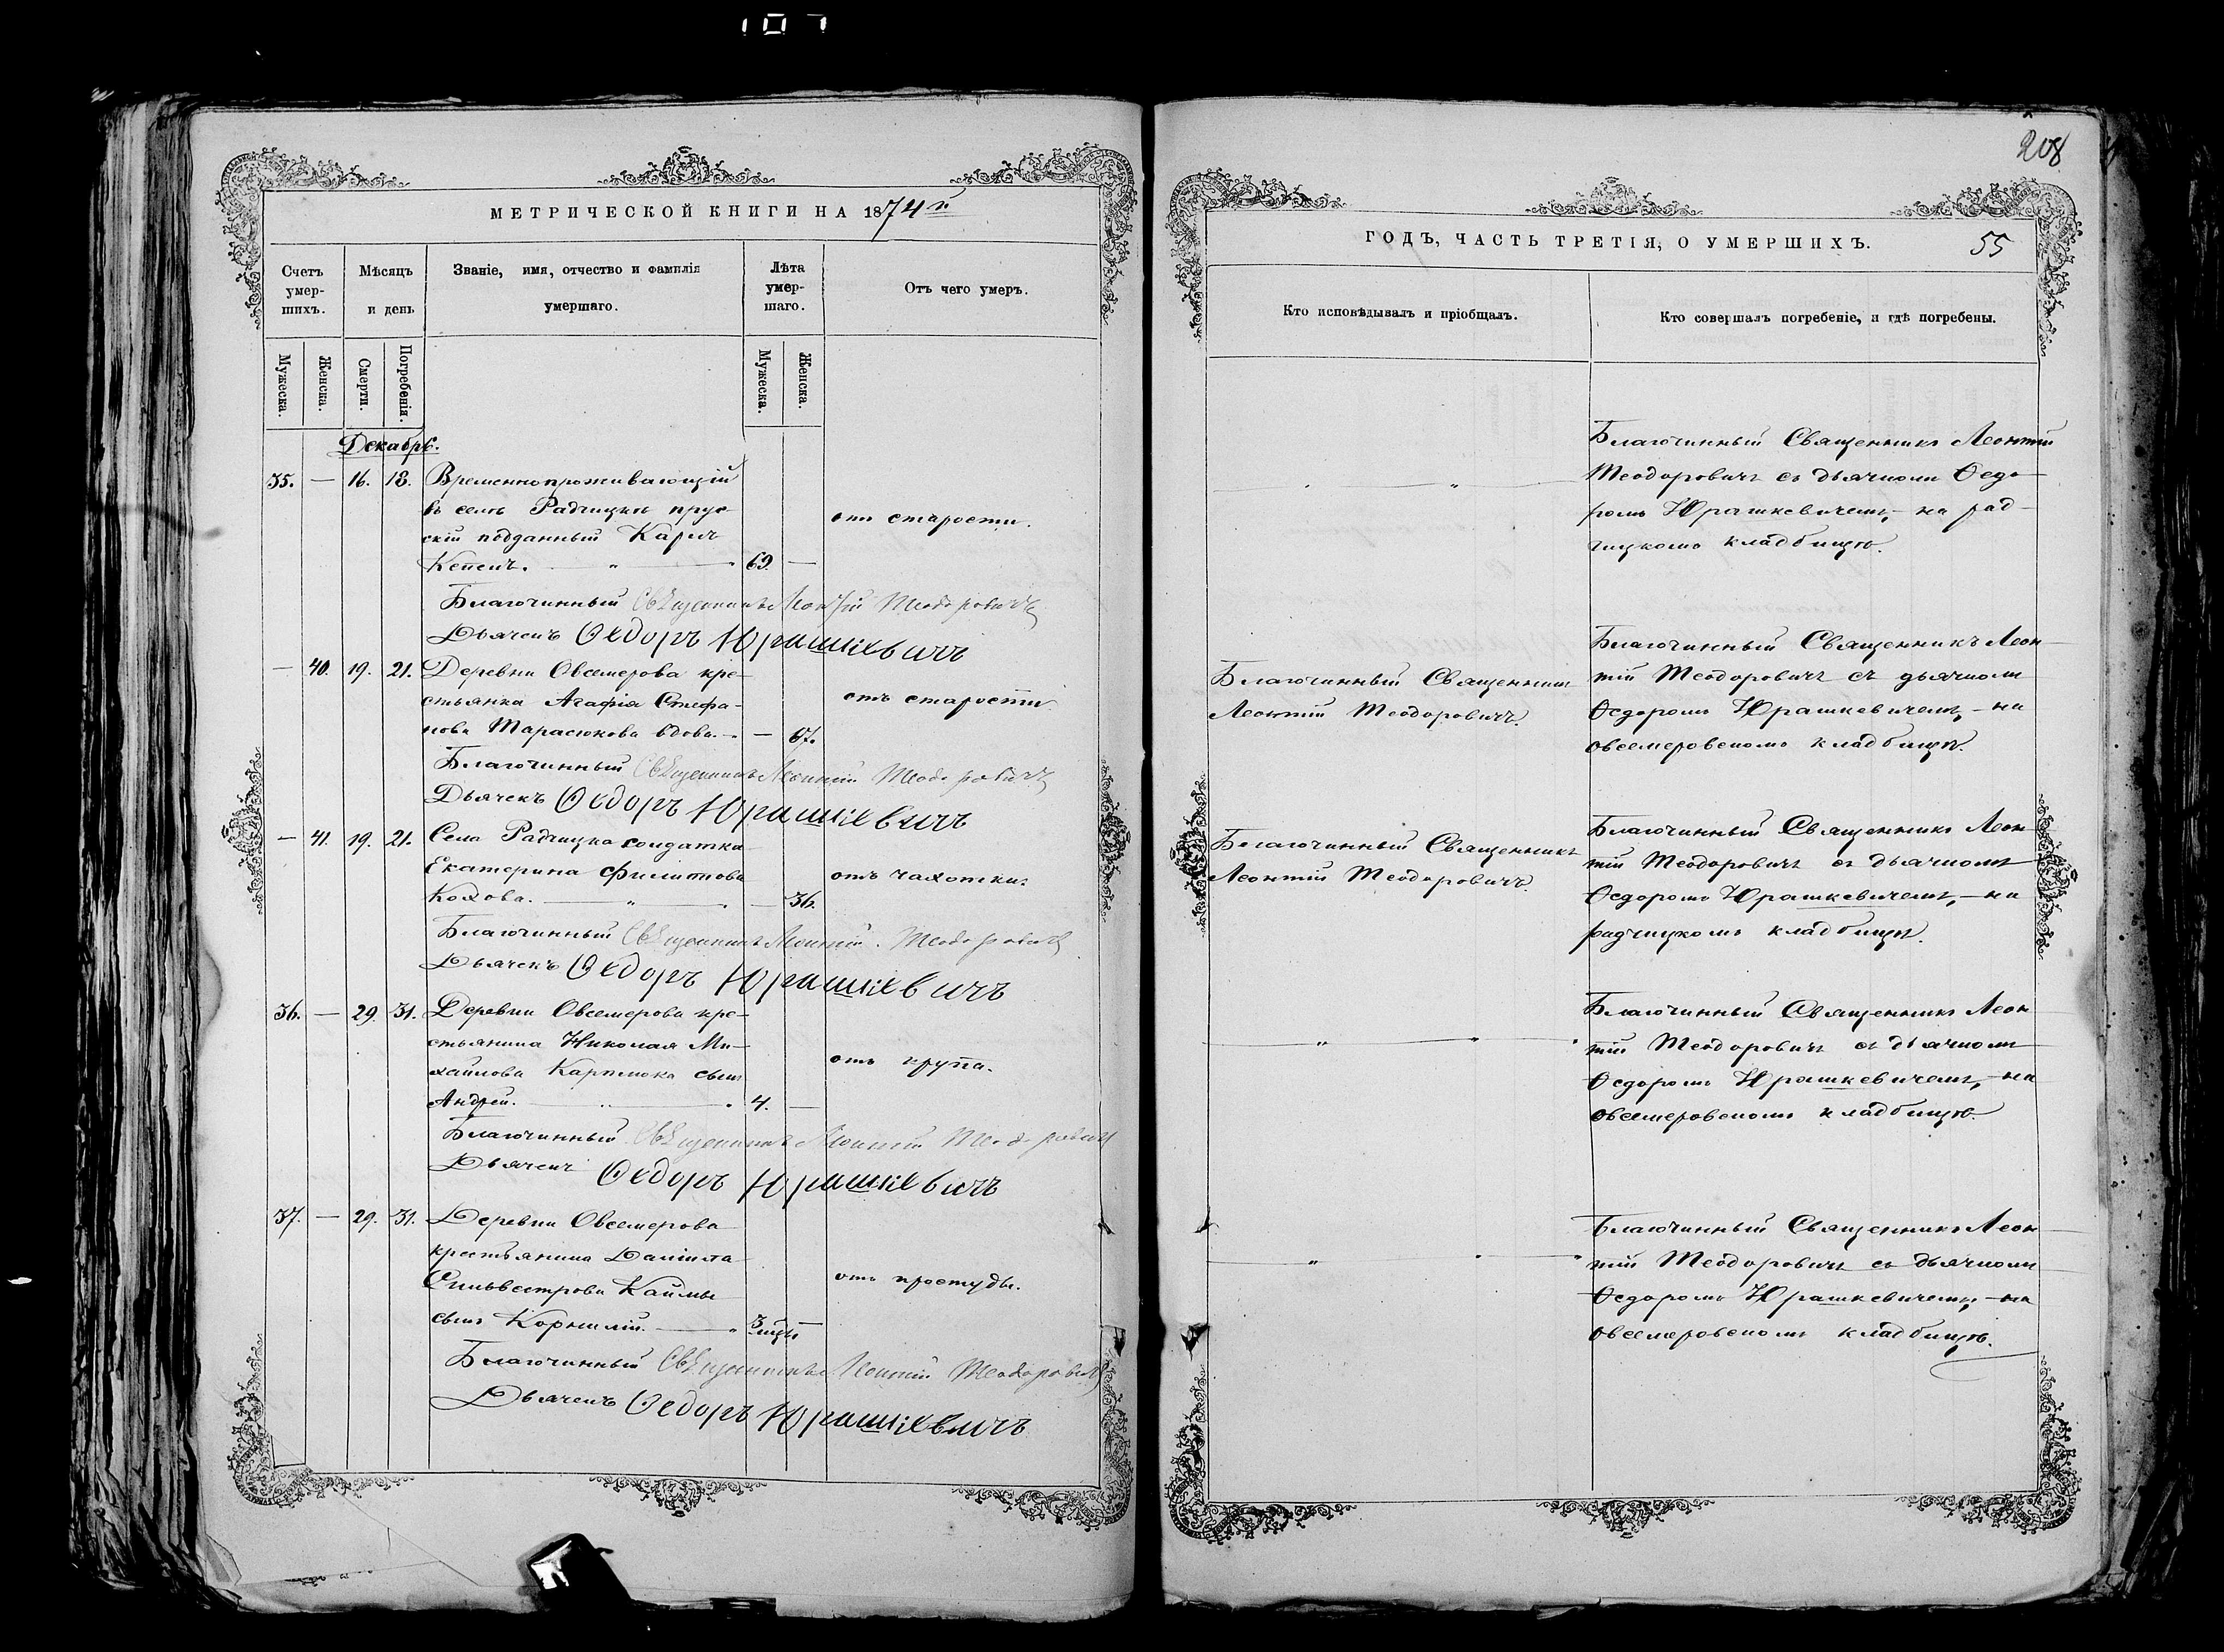 107
МЕТРИЧЕСКОЙ КНИГИ НА 1874 г.
Счетъ умер-шихъ.
Мѣсяцъ и день
Званіе, имя, отчество и фамилія умершаго.
Лѣта умер-шаго.
Отъ чего умеръ.
Мужеска.
Женска.
Смерти.
Погребенія.
Мужеска.
Женска.
Декабрь.
35. — 16. 18. Временнопроживающій
въ селѣ Радчицкѣ прус-
скій подданный Карлъ
отъ старости.
69. —
Благочинный Священникъ Леонтій Теодоровичъ
Дьячекъ Ѳедоръ Юрашкевичъ
— 40. 19. 21. Деревни Овсемерова кре-
стьянка Агафія Стефа-
нова Тарасюкова вдова. — 67.
отъ старости
Благочинный Священникъ Леонтій Теодоровичъ
Дьячекъ Ѳедоръ Юрашкевичъ
— 41. 19. 21. Села Радчицка солдатка
Екатерина Филипова
Кохова. — 36.
отъ чахотки.
Благочинный Священникъ Леонтій Теодоровичъ
Дьячекъ Ѳедоръ Юрашкевичъ
36. — 29. 31. Деревни Овсемерова кре-
стьянина Николая Ми-
хайлова Карпюка сынъ
Андрей. 4. —
отъ крупа.
Благочинный Священникъ Леонтій Теодоровичъ
Дьячекъ Ѳедоръ Юрашкевичъ
37. — 29. 31. Деревни Овсемерова
крестьянина Даніила
Сильвестрова Каймы
сынъ Корнилій. 3 мцы —
отъ простуды.
Благочинный Священникъ Леонтій Теодоровичъ
Дьячекъ Ѳедоръ Юрашкевичъ
208
ГОДЪ, ЧАСТЬ ТРЕТІЯ, О УМЕРШИХЪ.
55
Кто исповѣдывалъ и пріобщалъ.
Кто совершалъ погребеніе, и гдѣ погребены.
Благочинный Священникъ Леонтій
Теодоровичъ съ дьячкомъ Ѳедо-
ромъ Юрашкевичемъ, — на рад-
чицкомъ кладбищѣ.
Благочинный Священникъ
Леонтій Теодоровичъ.
Благочинный Священникъ Леон-
тій Теодоровичъ съ дьячкомъ
Ѳедоромъ Юрашкевичемъ, — на
овсемеровскомъ кладбищѣ.
Благочинный Священникъ
Леонтій Теодоровичъ.
Благочинный Священникъ Леон-
тій Теодоровичъ съ дьячкомъ
Ѳедоромъ Юрашкевичемъ, — на
радчицкомъ кладбищѣ.
Благочинный Священникъ Леон-
тій Теодоровичъ съ дьячкомъ
Ѳедоромъ Юрашкевичемъ, — на
овсемеровскомъ кладбищѣ.
Благочинный Священникъ Леон-
тій Теодоровичъ съ дьячкомъ
Ѳедоромъ Юрашкевичемъ, — на
овсемеровскомъ кладбищѣ.